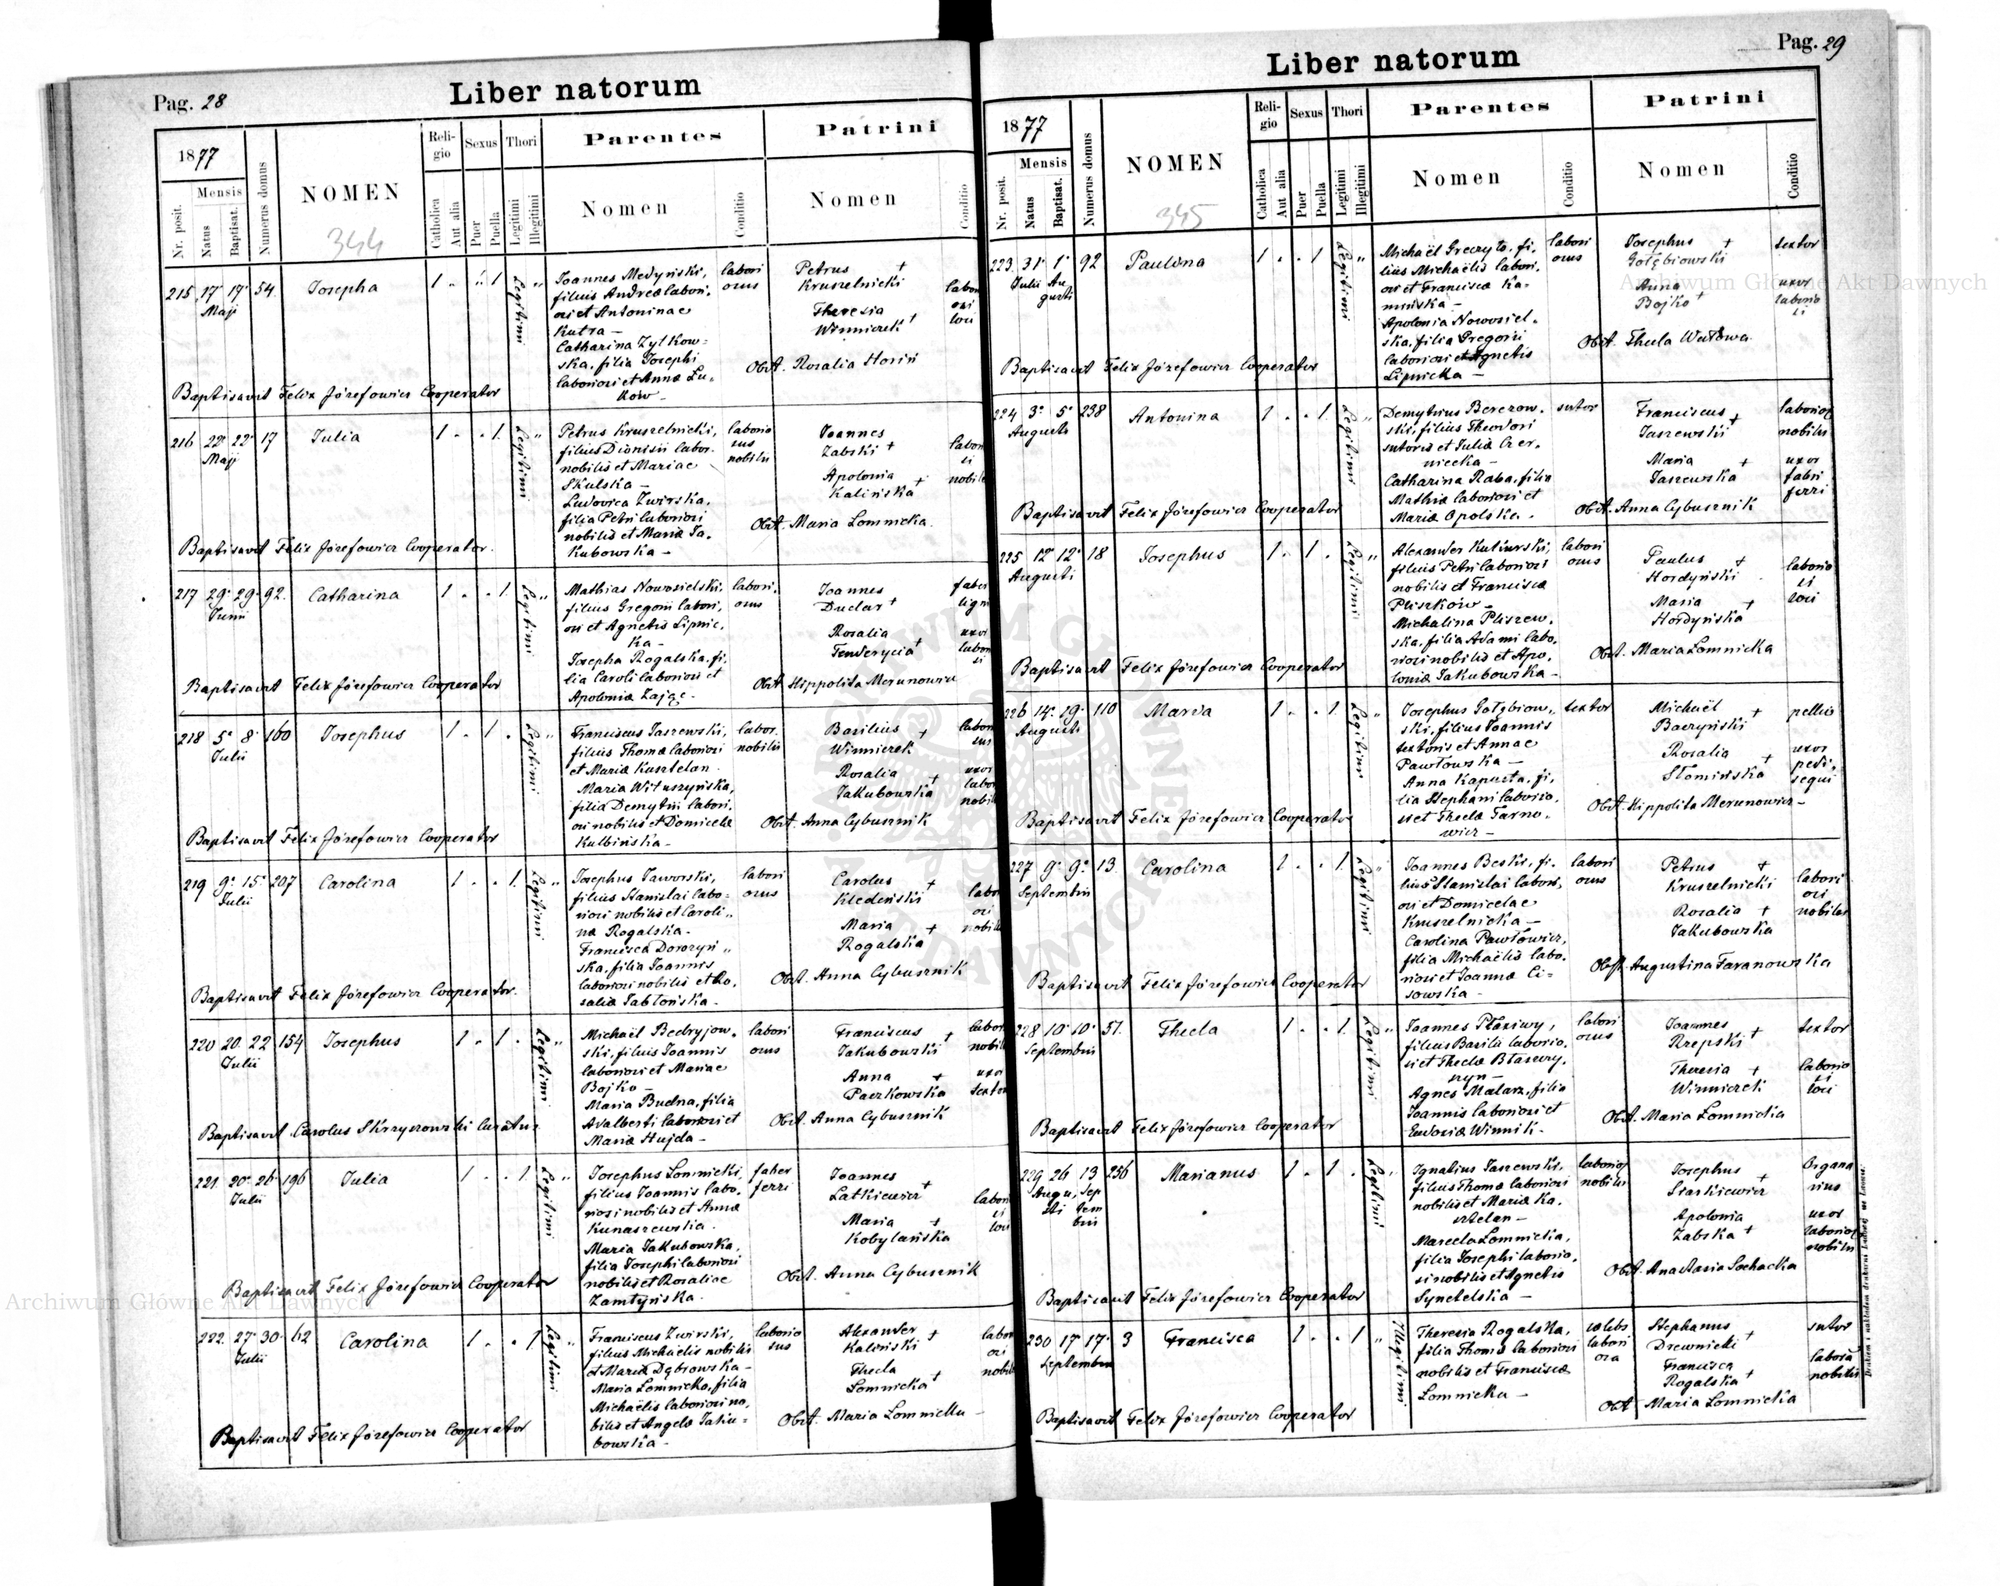 Pag. 28
Liber natorum
1877
Mensis
Nr. posit.
Natus
Baptisat.
Numerus domus
NOMEN
344
Religio
Catholica
Aut alia
Sexus
Puer
Puella
Thori
Legitimi
Illegitimi
Parentes
Nomen
Conditio
Patrini
Nomen
Conditio
215 17 17 54
Maji
Josepha
1 . . 1
Legitimi
Joannes Medyński,
filius Andreæ labori,
osi et Antoninae
Kutra —
Catharina Zytkow=
ska, filia Josephi
laboriosi et Annæ Lu,
ków —
labori
osus
Petrus +
Kruszelnicki
Theresia
Winniczek +
labori
osi
loci
Obst. Rosalia Horiń
Baptisavit Felix Józefowicz Cooperator
216 22 22 17
Maji
Julia
1 . . 1.
Legitimi
Petrus Kruszelnicki,
filius Dionisii labor.
nobilis et Mariae
Skulska —
Ludovica Zwirska,
filia Petri laboriosi
nobilis et Mariæ Ja,
kubowska —
laborio
sus
nobilis
Joannes
Zabski +
Apolonia
Kalińska +
labori
si
nobiles
Obst. Maria Lomnicka.
Baptisavit Felix Józefowicz Cooperator.
217 29 29 92.
Junii
Catharina
1 . . 1.
Legitimi
Mathias Nowosielski,
filius Gregorii labori,
osi et Agnetis Lipnic,
ka —
Josepha Rogalska, fi,
lia Caroli laboriosi et
Apoloniæ Zając —
labori,
osus
Joannes
Duclar +
Rosalia
Tenderycia +
faber
lign
uxor
labori
si
Obst. Hippolita Merunowicz
Baptisavit Felix Józefowicz Cooperator
218 5 8 160
Julii
Josephus
1 . 1 .
Legitimi
Franciscus Jaszewski,
filius Thomæ laboriosi
et Mariæ Kasztelan
Maria Wituszyńska,
filia Demytrii labori,
osi nobilis et Domicelæ
Kulbińska —
labor.
nobilis
Basilius
Winniczek +
Rosalia +
Jakubowska
uxor
Obst. Anna Cybusznik
Baptisavit Felix Józefowicz Cooperator
219 9 15 207
Julii
Carolina
1 . . 1.
Legitimi
Josephus Jaworski,
filius Stanislai labo=
riosi nobilis et Caroli,,
næ Rogalska.
Francisca Dorozyń,,
ska, filia Joannis
laboriosi nobilis et Ro,
saliæ Jabłońska.
labori
osus
Carolus +
Kledeński
Maria +
Rogalska
labori
osi
nobiles
Obst. Anna Cybusznik
Baptisavit Felix Józefowicz Cooperator.
220 20 22 154
Julii
Josephus
1 . 1 .
Legitimi
Michaël Bedryjow,
ski, filius Joannis
laboriosi et Mariae
Bojko —
Maria Budna, filia
Adalberti laboriosi et
Mariæ Hujda —
labori
osus
Franciscus
Jakubowski +
Anna +
Paczkowska
uxor
textor
Obst. Anna Cybusznik
Baptisavit Carolus Skrzyszowski Curatus
221 20 26 196
Julii
Julia
1 . . 1
Legitimi
Josephus Lomnicki,
filius Joannis labo,
riosi nobilis et Annæ
Kunaszewska.
Maria Jakubowska,
filia Josephi laboriosi
nobilis et Rosaliae
Zamtyńska.
faber
ferri
Joannes
Latkiewicz +
Maria +
Kobylańska
labori
si
loci
Obst. Anna Cybusznik
Baptisavit Felix Józefowicz Cooperator
222. 27 30 62
Julii
Carolina
1 . . 1
Legitimi
Franciscus Zwirski,
filius Michaelis nobilis
et Mariæ Dąbrowska —
Maria Lomnicka, filia
Michaëlis laboriosi no,
bilis et Angelæ Jaku=
bowska —
laborio
sus
Alexander +
Kaliński
Thecla
Lomnicka +
labori
osi
nobiles
Obst. Maria Lomnicka —
Baptisavit Felix Józefowicz Cooperator
Pag. 29
Liber natorum
1877
Mensis
Nr. posit.
Natus
Baptisat.
Numerus domus
NOMEN
345
Religio
Catholica
Aut alia
Sexus
Puer
Puella
Thori
Legitimi
Illegitimi
Parentes
Nomen
Conditio
Patrini
Nomen
Conditio
223. 31 1 92
Julii Au
gusti
Paulina
1 . . 1
Legitimi
Michaël Greczyto, fi,
lius Michaëlis labori,
osi et Franciscæ Ka,
mińska —
Apolonia Nowosiel,
ska, filia Gregorii
laboriosi et Agnetis
Lipnicka —
labori
osus
Josephus +
Gołębiowski
Anna
Bojko +
textor
uxor
laborio
si
Obst. Thecla Watowa
Baptisavit Felix Józefowicz Cooperator
224 3 5 238
Augusti
Antonina
1 . . 1.
Legitimi
Demytrius Berezow,
ski, filius Theodori
sutoris et Juliæ Czer,
niecka —
Catharina Raba, filia
Mathiæ laboriosi et
Mariæ Opolska.
sutor
Franciscus +
Jaszewski
Maria +
Jaszewska
nobilis
uxor
fabri
ferri
Obst. Anna Cybusznik
Baptisavit Felix Józefowicz Cooperator
225 12 12 18
Augusti
Josephus
1 . 1 .
Legitimi
filius Petri laboriosi
nobilis et Franciscæ
Pliszków —
Michalina Pliszew,
ska, filia Adami labo,
riosi nobilis et Apo,
loniæ Jakubowska —
labori
osus
Paulus +
Hordyński
Maria +
Hordyńska
laborio
si
loci
Obst. Maria Lomnicka
Baptisavit Felix Józefowicz Cooperator
226 14 19 110
Augusti
Maria
1 . . 1.
Legitimi
Josephus Gołębiow,,
ski, filius Joannis
textoris et Annae
Pawłowska —
Anna Kapusta, fi,
lia Stephani laborio,
si et Theclæ Tarno,
wicz —
textor
Michaël
Baczyński +
Rosalia +
Słomińska
pellio
uxor
pedi,
sequi
Obst. Hippolita Merunowicz —
Baptisavit Felix Józefowicz Cooperator
227 9 9 13.
Septembris
Carolina
1 . . 1
Legitimi
Joannes Beski, fi,
lius Stanislai labori,
osi et Domicelae
Kruszelnicka —
Carolina Pawłowicz,
filia Michaëlis labo,
riosi et Joannæ Ci=
sowska —
labori
osus
Petrus +
Kruszelnicki
Rosalia +
Jakubowska
labori
osi
nobiles
Obst. Augustina Taranowska
Baptisavit Felix Józefowicz Cooperator
228 10 10 51.
Septembris
Thecla
1 . . 1.
Legitimi
Joannes Płaziwy,
filius Basilii laborio,
si et Theclæ Błaszczy,
szyn —
Agnes Malarz, filia
Joannis laboriosi et
Eudoxiæ Winnik —
labori
osus
Joannes
Rzepski +
Theresia +
Winniczek
textor
laborio
si
loci
Obst. Maria Lomnicka
Baptisavit Felix Józefowicz Cooperator
229 26 13 256
Augu, Sep
sti tem
bris
Marianus
1 . 1 .
Legitimi
Ignatius Jaszewski,
filius Thomæ laboriosi
nobilis et Mariæ Ka,
sztelan —
Marcela Lomnicka,
filia Josephi laborio,
si nobilis et Agnetis
laborios
nobilis
Josephus +
Siarkiewicz
Apolonia
Zabska +
Organa
rius
uxor
laborios
nobilis
Obst. Anastasia Sochacka
Baptisavit Felix Józefowicz Cooperator
230 17 17 3
Septembris
Francisca
1 . . 1
Illegitimi
Theresia Rogalska,
filia Thomæ laboriosi
nobilis et Franciscæ
Lomnicka —
cælebs
labori
osa
Stephanus +
Drewnicki
Francisca
Rogalska +
sutor
nobilis
Obst. Maria Lomnicka
Baptisavit Felix Józefowicz Cooperator
Archiwum Główne Akt Dawnych
Archiwum Główne Akt Dawnych
ARCHIWUM GŁÓWNE AKT DAWNYCH